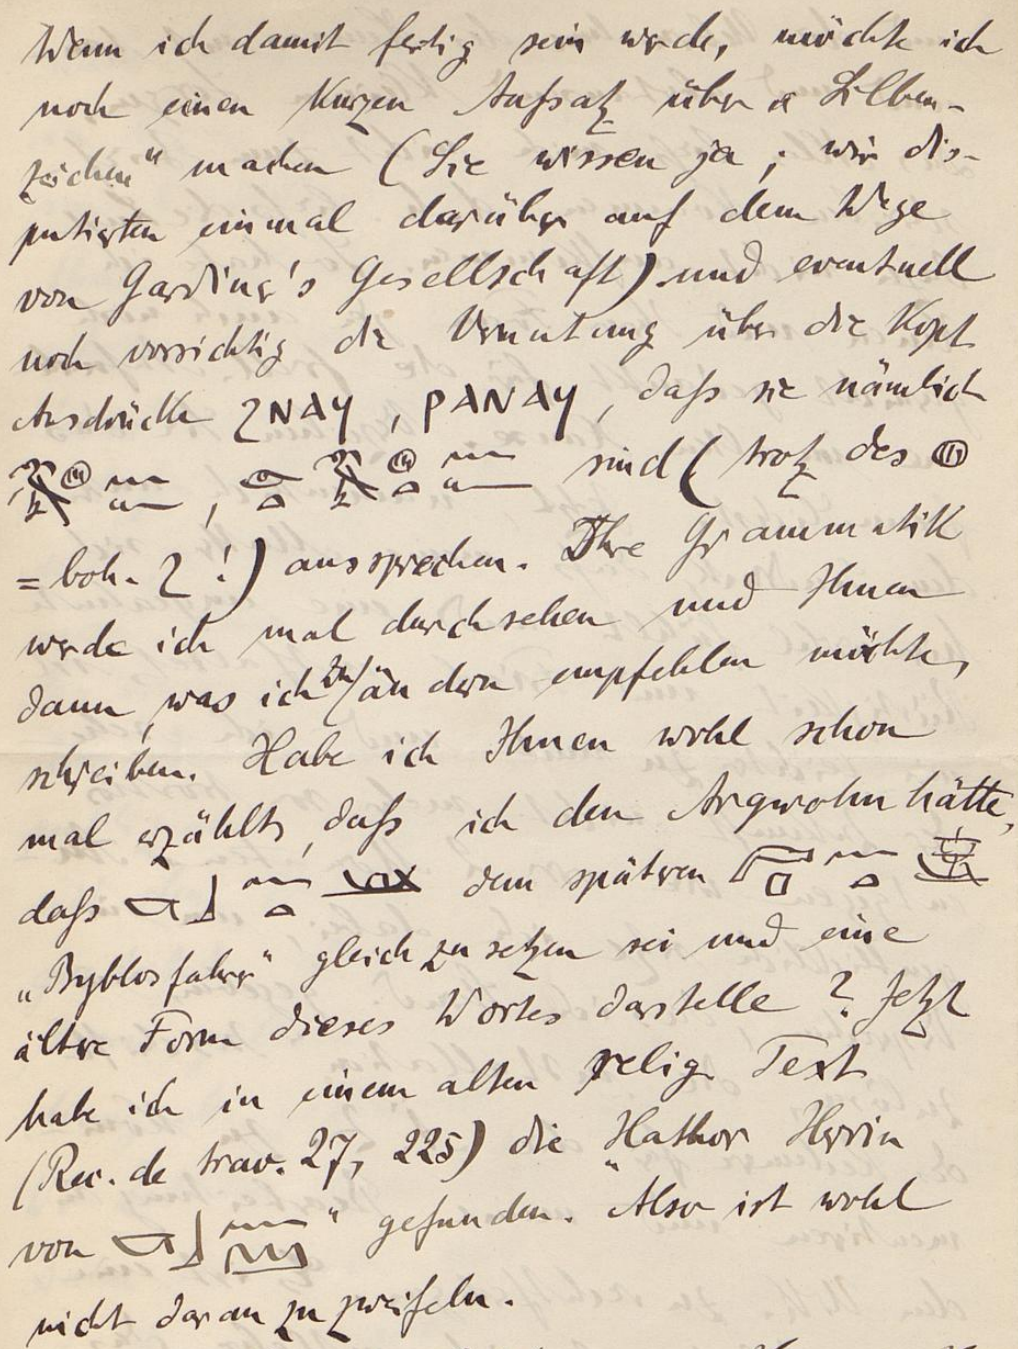 Wenn ich damit fertig sein werde, möchte ich
noch einen kurzen Aufsatz über „Silben-
zeichen“ machen (Sie wissen ja; wir dis-
putirten einmal darüber auf dem Wege
von Gardiner's Gesellschaft) und eventuell
noch vorsichtig die Vermutung über die Kopt
Ausdrücke ϩⲛⲁⲩ, ⲣⲁⲛⲁⲩ, daſs sie nämlich
sind (trotz des 𓐍
= boh. ϩ!) aussprechen. Ihre Grammatik
werde ich mal durchsehen und Ihnen
dann, was ich zu ändern empfehlen möchte,
schreiben. Habe ich Ihnen wohl schon
mal erzählt, daſs ich den Argwohn hätte,
daſs 𓎡𓃀𓈖𓏏 dem späteren
„Byblosfahrer“ gleich zu setzen sei und eine
ältere Form dieses Wortes darstelle? Jetzt
habe ich in einem alten relig. Text
(Rec. de trav. 27, 225) die „Hathor Herrin
von 𓎡𓃀𓈖𓈉“ gefunden. Also ist wohl
nicht daran zu zweifeln.